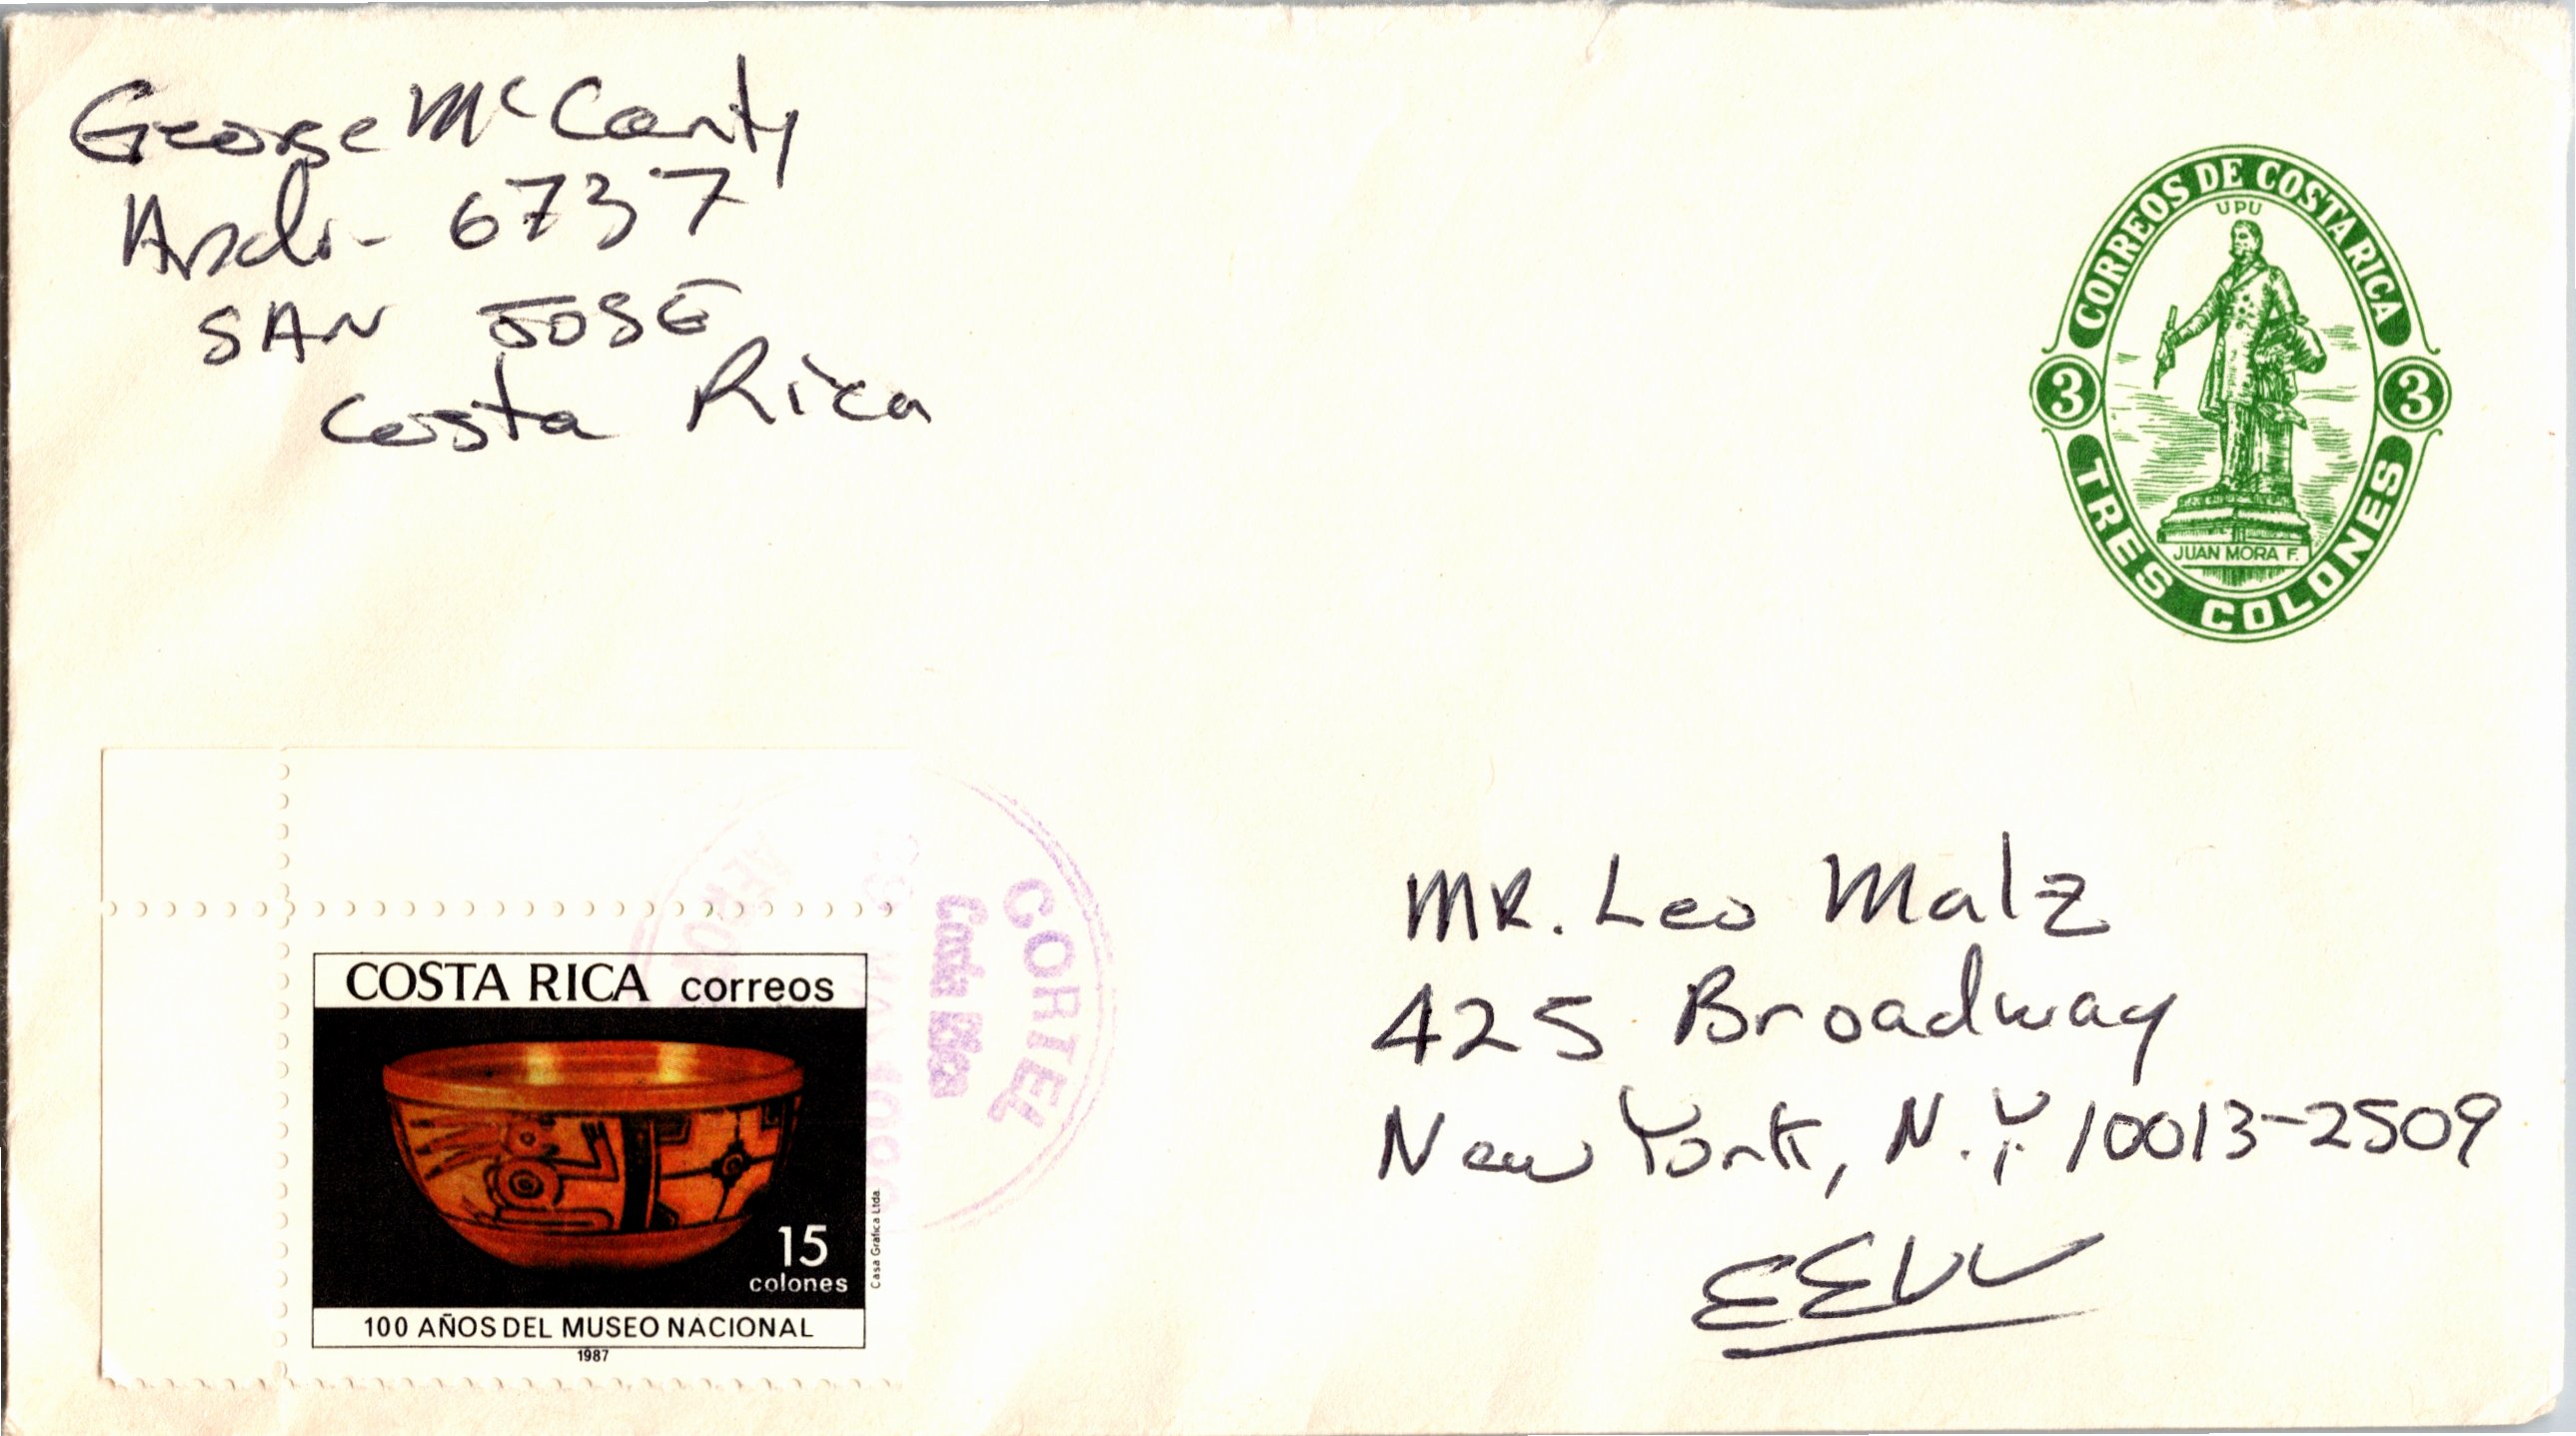 George McCarty
Apdo- 6737
SAN JOSE
Costa Rica
CORREOS DE COSTA RICA
UPU
3 3
JUAN MORA F.
TRES COLONES
CORTEL
Costa Rica
COSTA RICA correos
15
colones
Casa Gráfica Ltda.
100 AÑOS DEL MUSEO NACIONAL
1987
MR. Leo Malz
425 Broadway
New York, N.Y. 10013-2509
EEUU